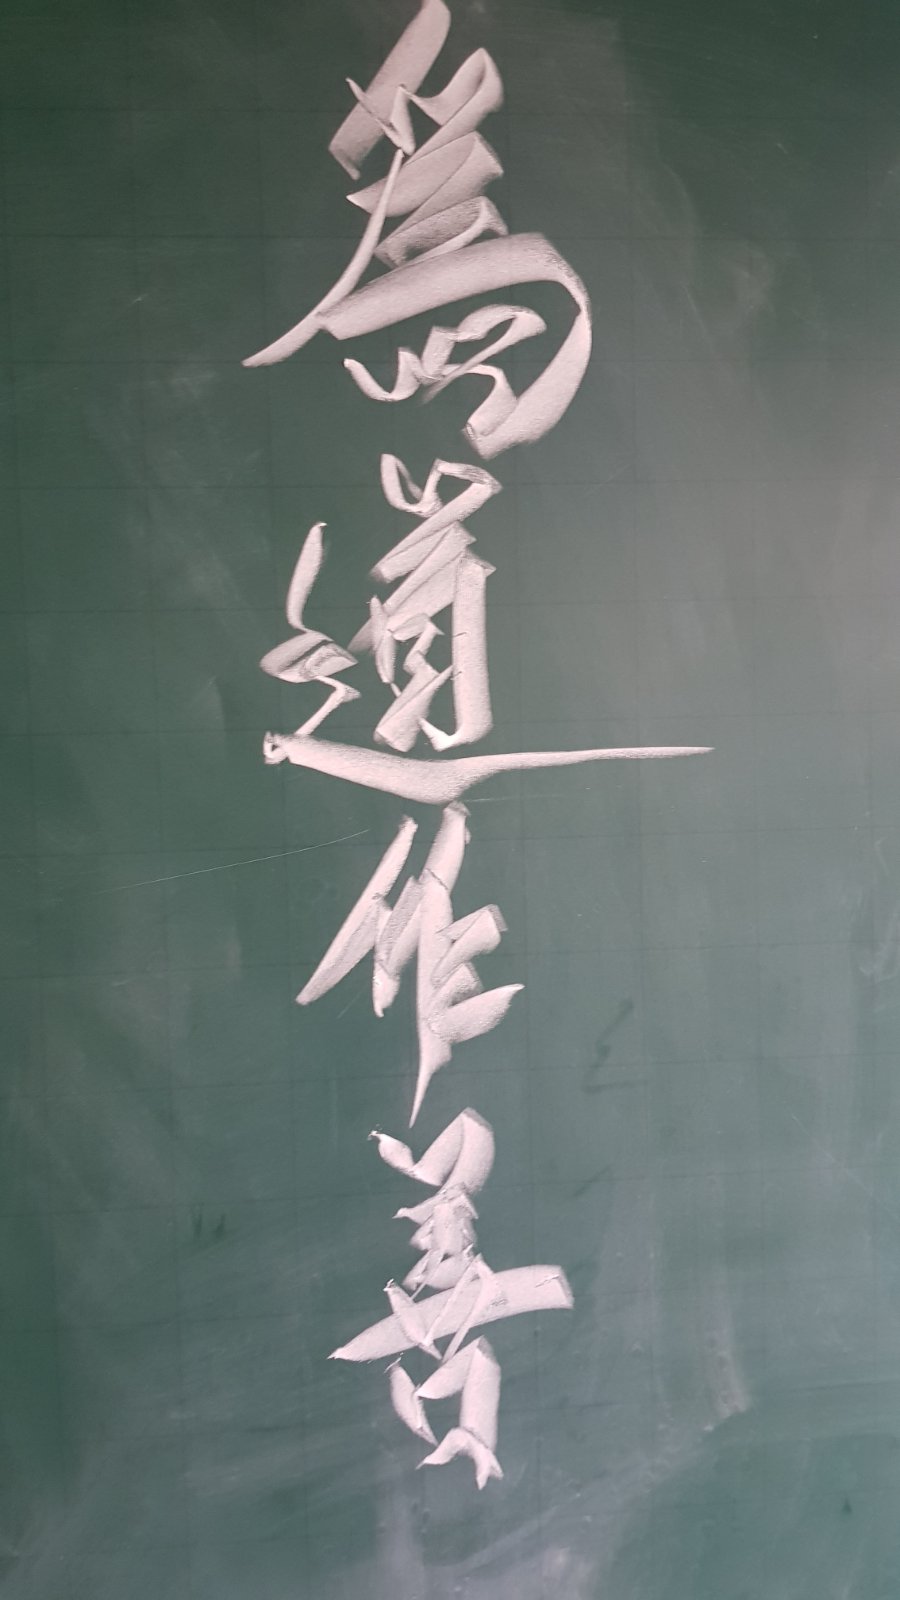 為道作善